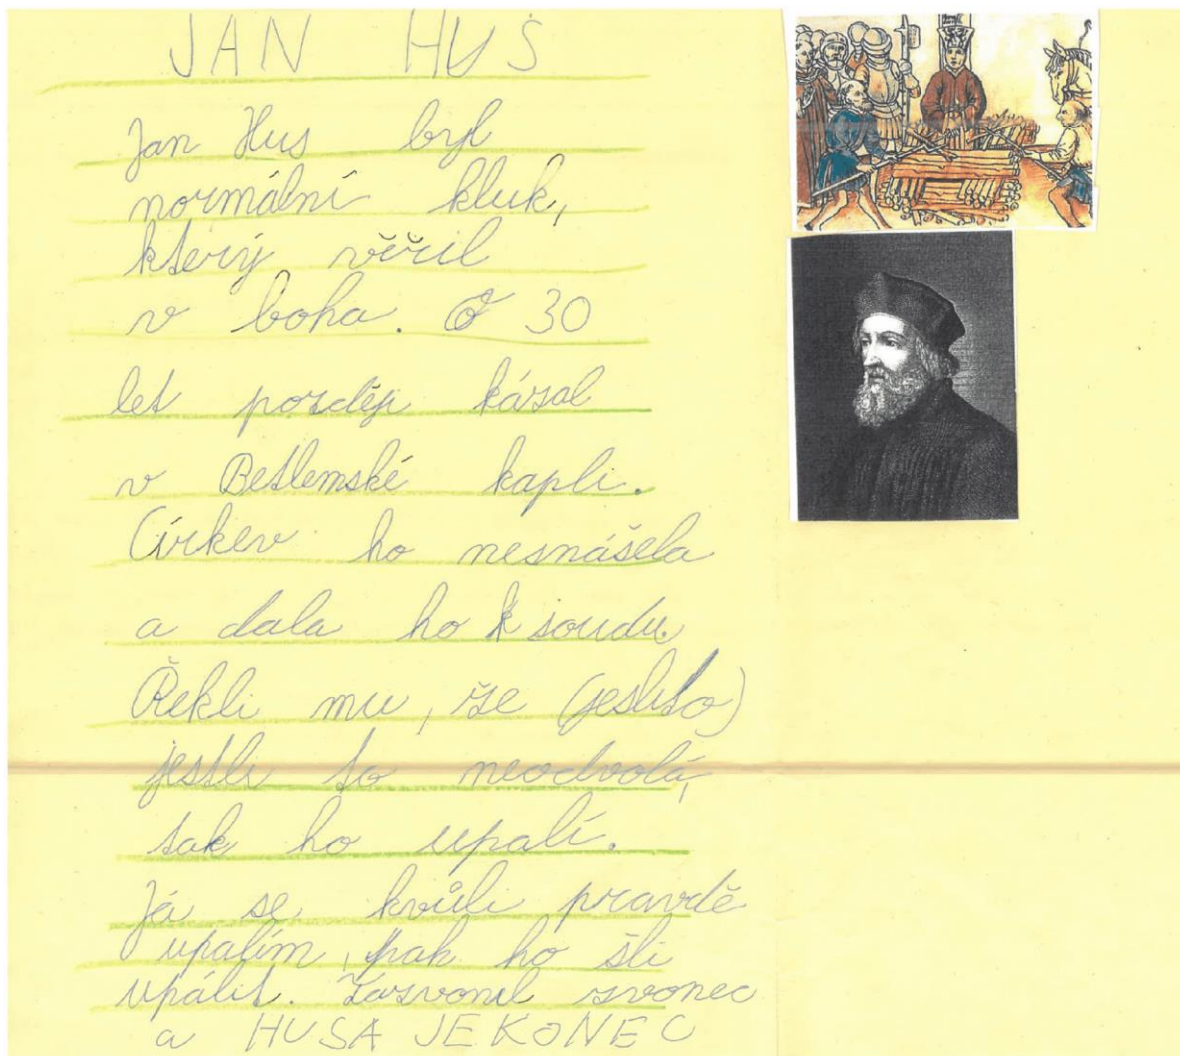 JAN HUS
Jan Hus byl
normální kluk,
který věřil
v boha. O 30
let později kázal
v Betlemské kapli.
Církev ho nesnášela
a dala ho k soudu.
Řekli mu, že (jeslito)
jestli to neodvolá,
tak ho upalí.
Já se kvůli pravdě
upalím, pak ho šli
upálit. Zazvonil zvonec
a HUSA JE KONEC